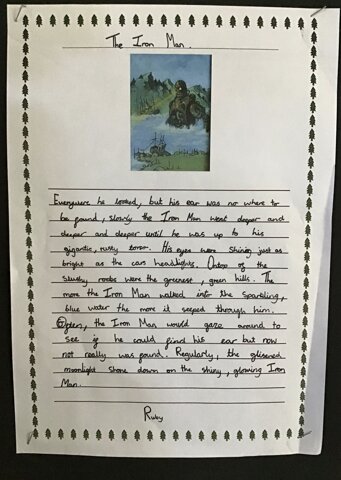 The Iron Man.
Everywere he looked, but his ear was no where to
be found, slowly the Iron Man went deeper and
deeper and deeper until he was up to his
gigantic, rusty torso. His eyes were shining just as
bright as the cars headlights. Ontop of the
slushy were the greenest, green hills. The
more the Iron Man walked into the sparkling,
blue water the more it seeped through him.
Often, the Iron Man would gaze around to
see if he could find his ear but now
not really was found. Regularly, the glisened
moonlight shone down on the shiny, glowing Iron
Man.
Ruby